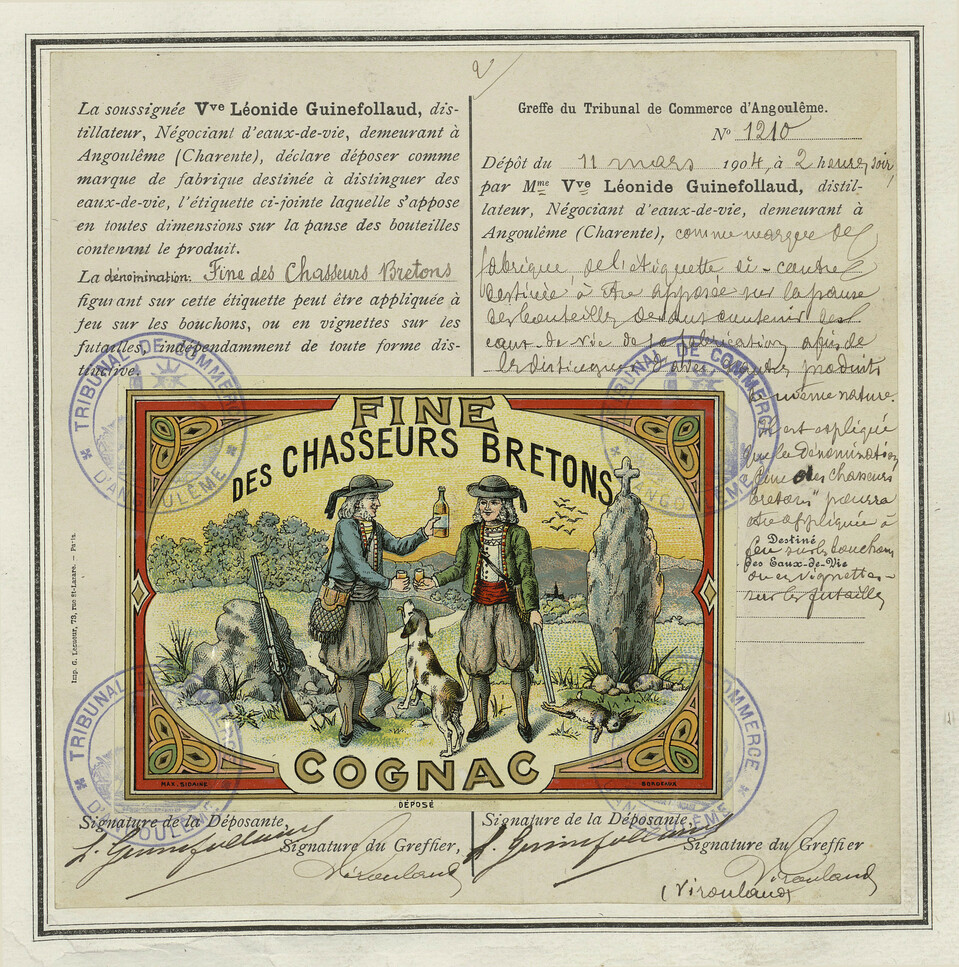 La soussignée Vve Léonide Guinefollaud, dis-
tillateur, Négociant d'eaux-de-vie, demeurant à
Angoulême (Charente), déclare déposer comme
marque de fabrique destinée à distinguer des
eaux-de-vie, l'étiquette ci-jointe laquelle s'appose
en toutes dimensions sur la panse des bouteilles
contenant le produit.
La dénomination: Fine des Chasseurs Bretons
figurant sur cette étiquette peut être appliquée à
jeu sur les bouchons, ou en vignettes sur les
futailles, indépendamment de toute forme dis-
tinctive.
Greffe du Tribunal de Commerce d'Angoulême.
No 1210
Dépôt du 11 mars 1904, à 2 heures soir,
par Mme Vve Léonide Guinefollaud, distil-
lateur, Négociant d'eaux-de-vie, demeurant à
Angoulême (Charente), comme marque de
fabrique, de l'étiquette ci-contre
destinée à être apposée sur la panse
des bouteilles devant contenir les
eaux-de-vie de sa fabrication afin de
les distinguer d'avec d'autres produits
de même nature.
Il est expliqué
que la dénomination
"Fine des chasseurs
bretons" pourra
être appliquée à
Destiné
feu sur les bouchons
des Eaux-de-Vie
ou en vignettes
sur les futailles
TRIBUNAL DE COMMERCE
D'ANGOULÊME
TRIBUNAL DE COMMERCE
D'ANGOULÊME
FINE
DES CHASSEURS BRETONS
COGNAC
BORDEAUX
DÉPOSÉ
Imp. G. Lecueur, 73, rue St-Lazare. — Paris.
TRIBUNAL DE COMMERCE
D'ANGOULÊME
TRIBUNAL DE COMMERCE
D'ANGOULÊME
Signature de la Déposante,
L. Guinefollaud
Signature du Greffier,
Virouland
Signature de la Déposante,
L. Guinefollaud
Signature du Greffier
Virouland
(Virouland)